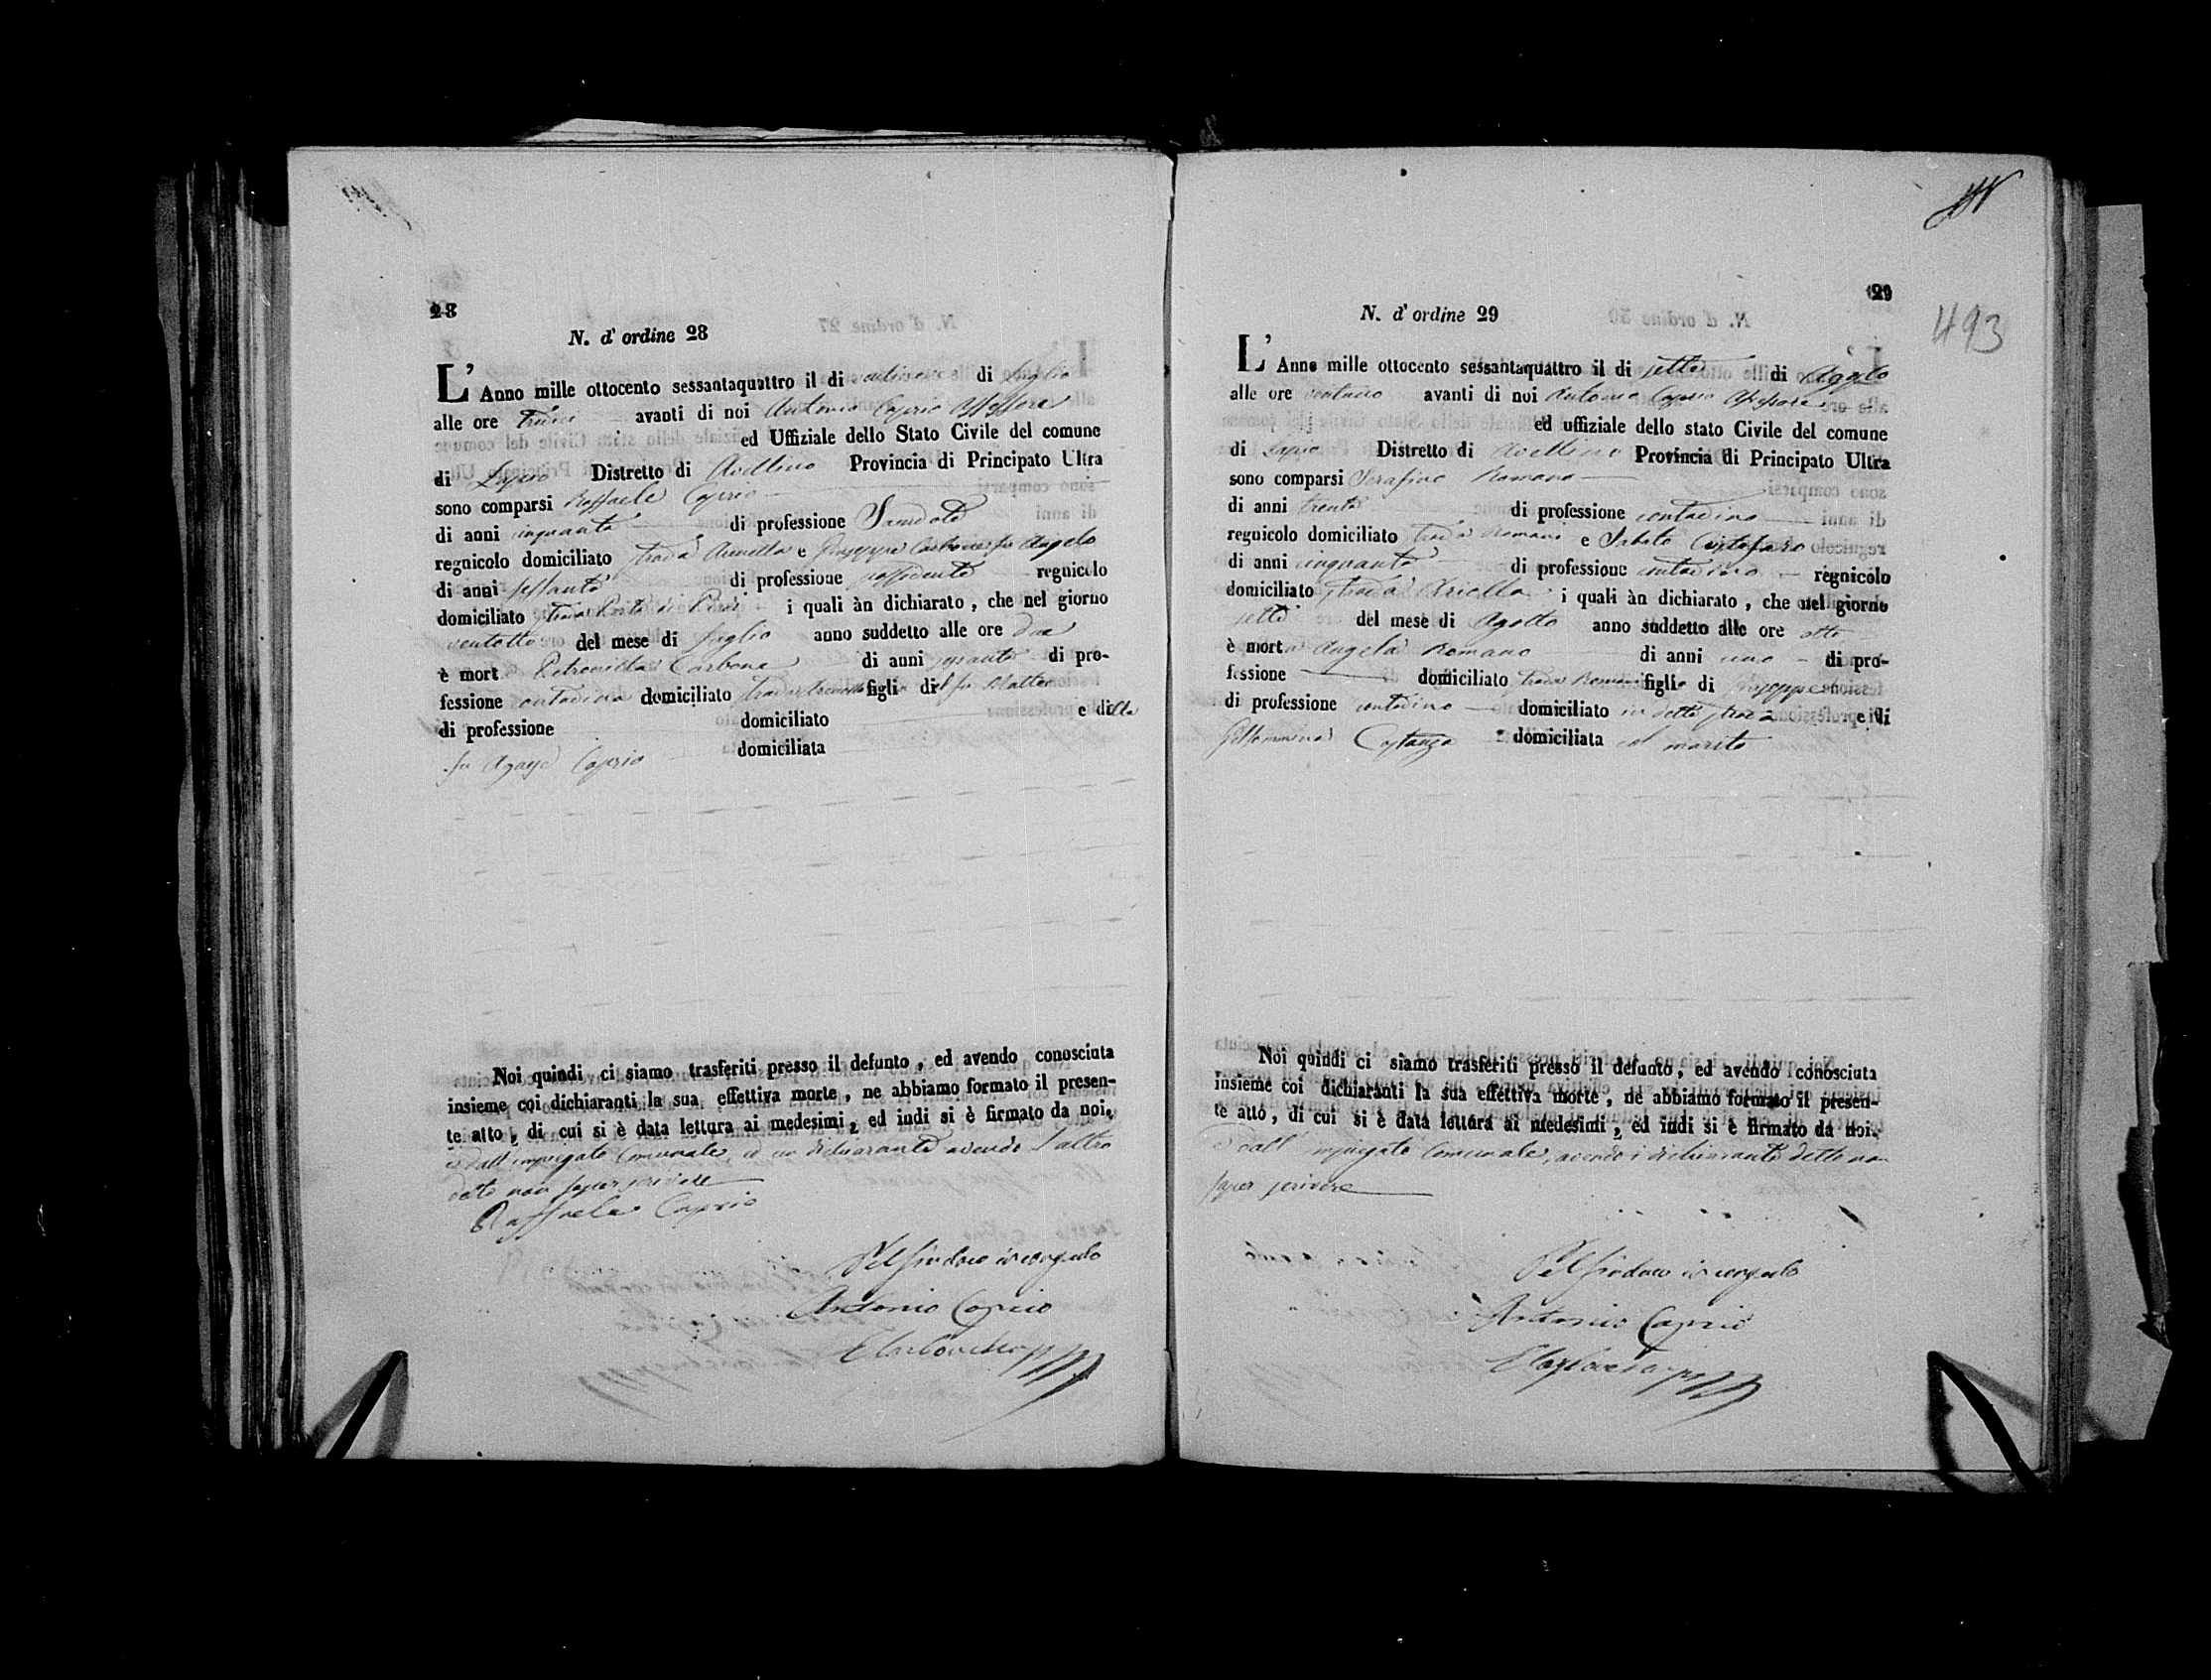 28
N. d' ordine 28
L' Anno mille ottocento sessantaquattro il di di Luglio
alle ore avanti di noi Antonio Caprio Assessore
ed Uffiziale dello Stato Civile del comune
di Lapio Distretto di Avellino Provincia di Principato Ultra
sono comparsi Raffaele Caprio
di anni cinquanta di professione Sacerdote
regnicolo domiciliato strada e Giuseppe Carbone fu Angelo
di anni sessanta di professione possidente regnicolo
domiciliato strada Porta di i quali àn dichiarato, che nel giorno
ventotto del mese di Luglio anno suddetto alle ore due
è mort Petronilla Carbone di anni di pro-
fessione contadina domiciliato strada figlia del fu Matteo
di professione domiciliato e della
fu Agata Caprio domiciliata
Noi quindi ci siamo trasferiti presso il defunto, ed avendo conosciuta
insieme coi dichiaranti la sua effettiva morte, ne abbiamo formato il presen-
te atto, di cui si è data lettura ai medesimi, ed indi si è firmato da noi,
e dall' impiegato Comunale, ed un dichiarante avendo l'altro
detto non saper scrivere
Raffaele Caprio
Pel Sindaco
Antonio Caprio
29
493
N. d' ordine 29
L' Anno mille ottocento sessantaquattro il di sette di Agosto
alle ore avanti di noi Antonio Caprio Assessore
ed uffiziale dello stato Civile del comune
di Lapio Distretto di Avellino Provincia di Principato Ultra
sono comparsi Serafino Romano
di anni trenta di professione contadino
regnicolo domiciliato strada Romani e Sabato
di anni cinquanta di professione contadino regnicolo
domiciliato strada Ariella i quali àn dichiarato, che nel giorno
sette del mese di Agosto anno suddetto alle ore otto
è morta Angela Romano di anni uno di pro-
fessione domiciliato strada Romani figlia di Giuseppe
di professione contadino domiciliato in detta strada e di
Filomena Costanza domiciliata col marito
Noi quindi ci siamo trasferiti presso il defunto, ed avendo conosciuta
insieme coi dichiaranti la sua effettiva morte, ne abbiamo formato il presen-
te atto, di cui si è data lettura ai medesimi, ed indi si è firmato da noi,
e dall' impiegato Comunale, avendo i dichiaranti detto non
saper scrivere
Pel Sindaco
Antonio Caprio